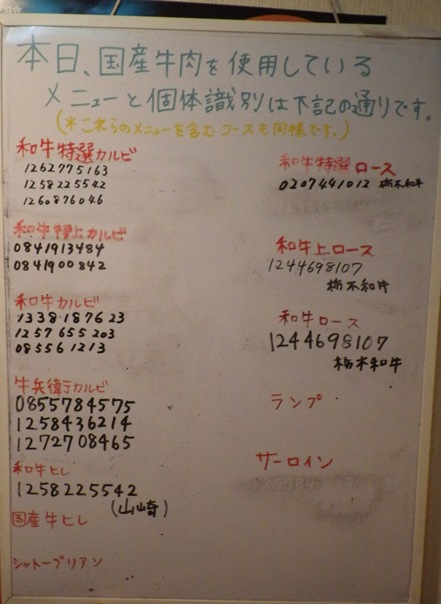 本日、国産牛肉を使用している
メニューと個体識別は下記の通りです。
(*これらのメニューを含むコースも同様です。)
和牛特選カルビ
1262775163
1258225542
1260876046
和牛特上カルビ
0841913484
0841900842
和牛カルビ
1338187623
1257655203
085561213
牛兵衛カルビ
0855784575
1258436214
1272708465
和牛ヒレ
1258225542
(山崎)
国産牛ヒレ
シャトーブリアン
和牛特選ロース
0207441012 栃木和牛
和牛上ロース
1244698107
栃木和牛
和牛ロース
1244698107
栃木和牛
ランプ
サーロイン